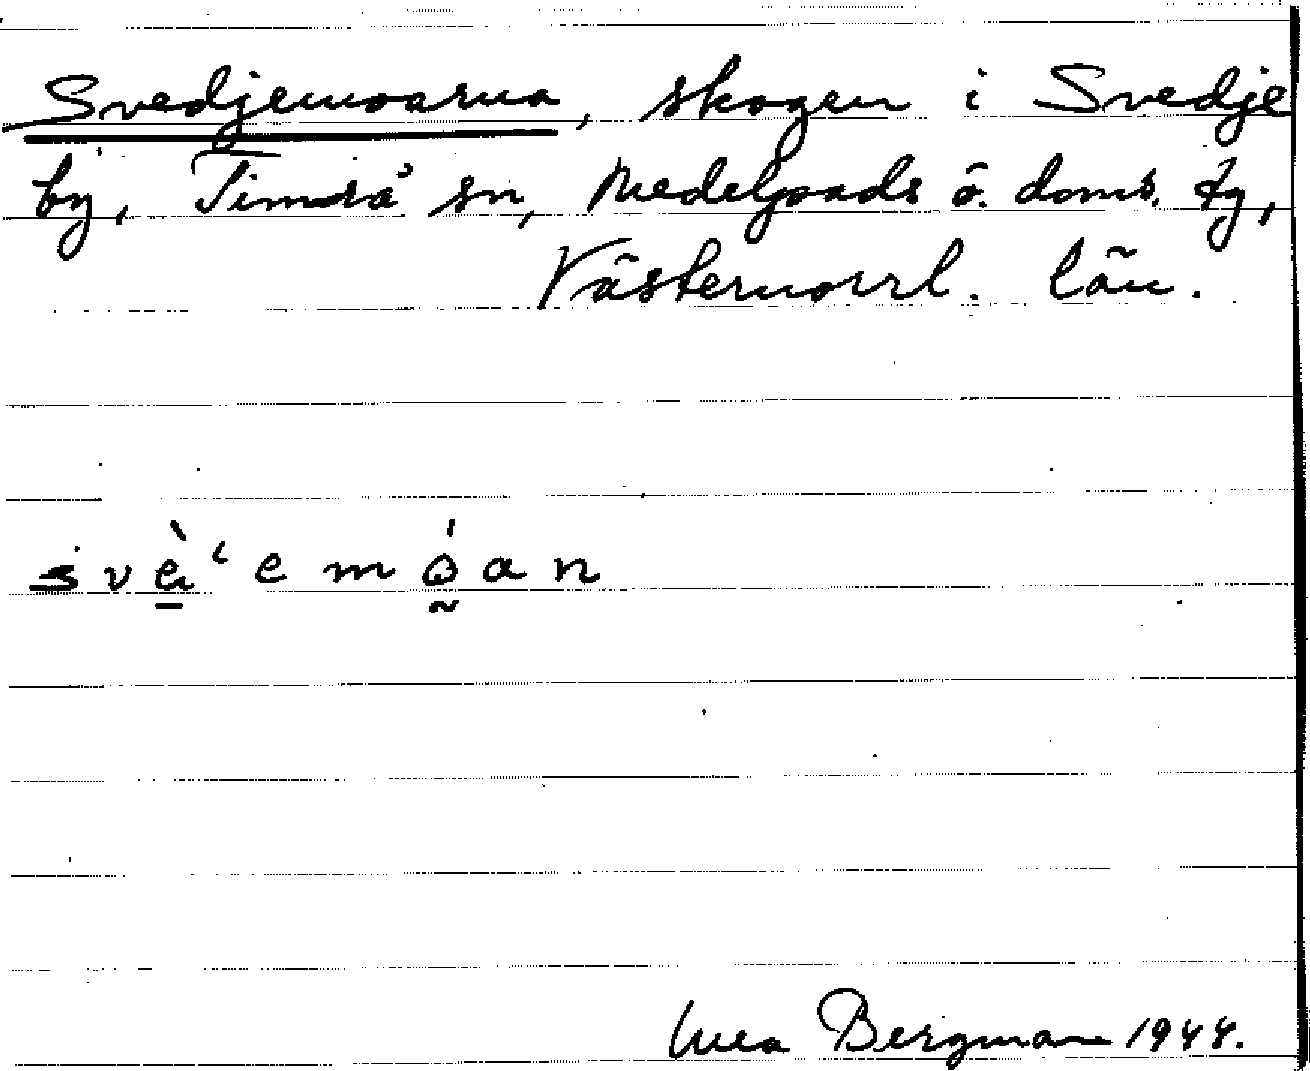 Svedjemoarna, skogen i Svedje
by, Timrå sn, Medelpads ö. doms. tg,
Västernorrl. län.
svè̠ʻemó̰an
Bergman 1944.